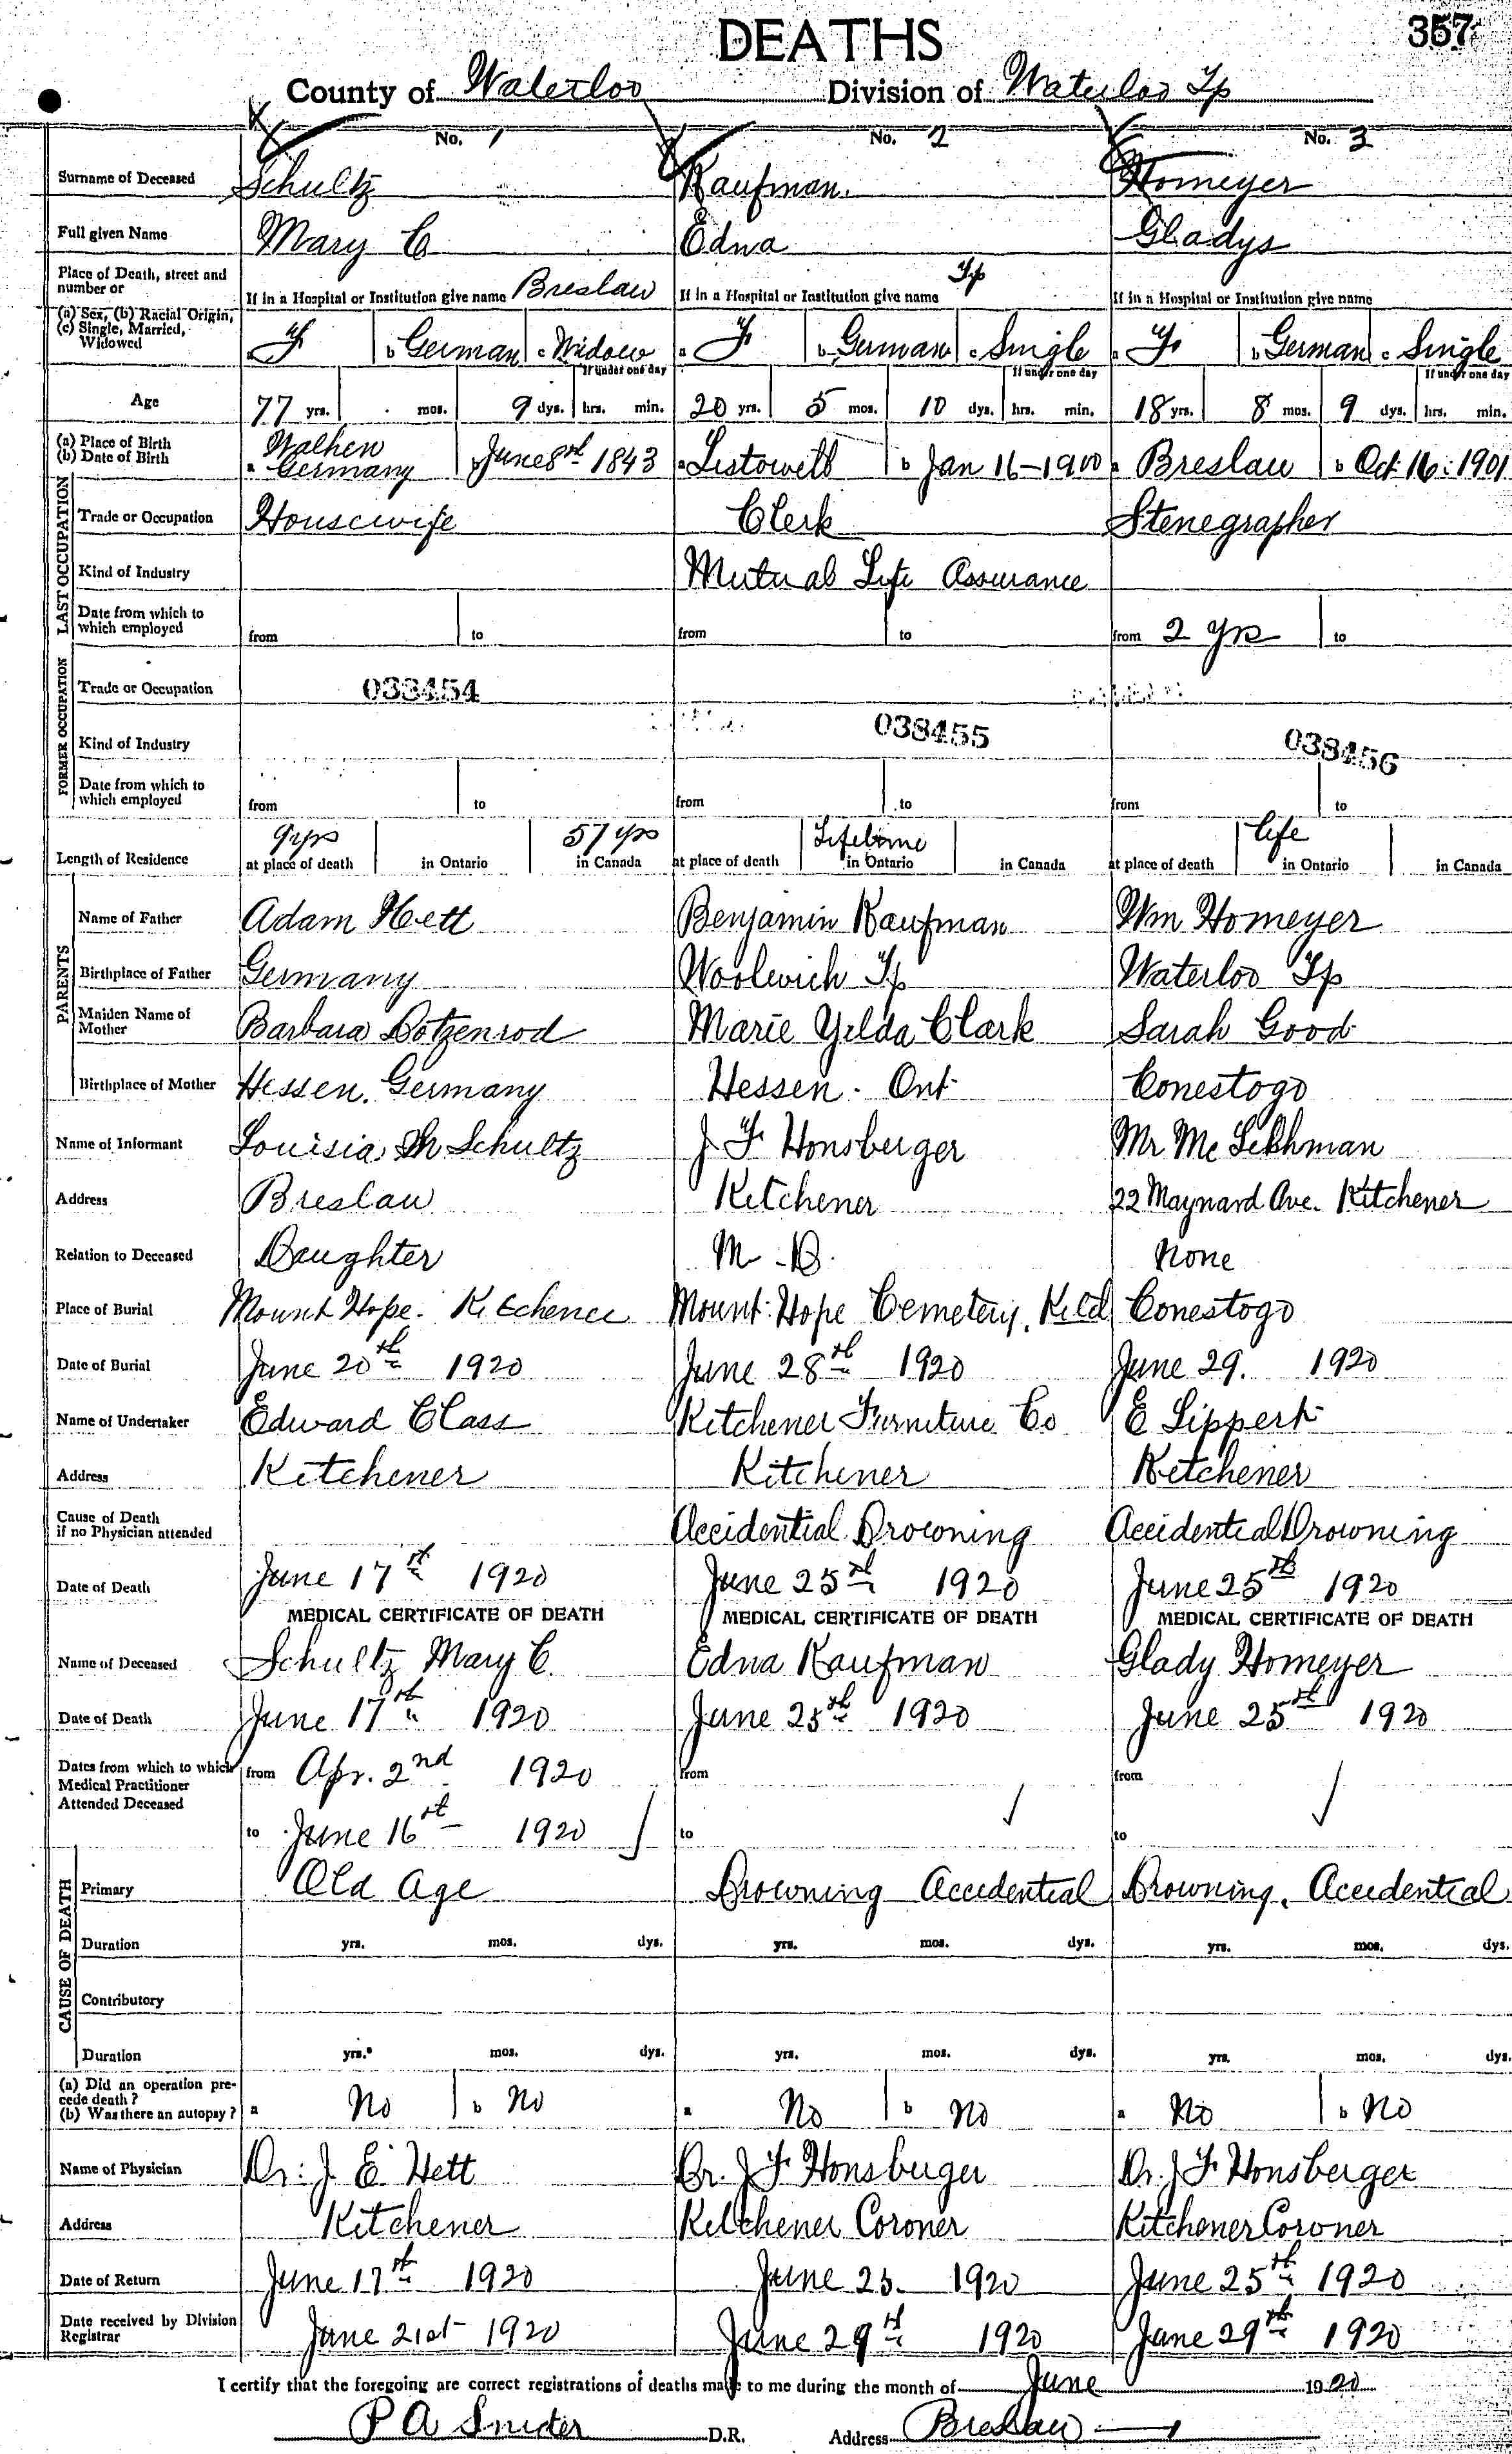 DEATHS
357
County of Waterloo Division of Waterloo Tp
No. 1 No. 2 No. 3
Surname of Deceased Schultz Kaufman. Homeyer
Full given Name Mary C Edna Gladys
Place of Death, street and number or If in a Hospital or Institution give name Breslau If in a Hospital or Institution give name Tp If in a Hospital or Institution give name
(a) Sex, (b) Racial Origin, (c) Single, Married, Widowed a F b German c Widow a F b German c Single a F b German c Single
If under one day If under one day If under one day
Age 77 yrs. mos. 9 dys. hrs. min. 20 yrs. 5 mos. 10 dys. hrs. min. 18 yrs. 8 mos. 9 dys. hrs. min.
(a) Place of Birth (b) Date of Birth a Walhen Germany b June 8th 1843 a Listowell b Jan 16-1900 a Breslau b Oct 16: 1901
LAST OCCUPATION
Trade or Occupation Housewife Clerk Stenegrapher
Kind of Industry Mutual Life Assurance
Date from which to which employed from to from to from 2 yrs to
FORMER OCCUPATION
Trade or Occupation 033454
Kind of Industry 038455 038456
Date from which to which employed from to from to from to
Length of Residence 9 yrs at place of death in Ontario 57 yrs in Canada at place of death Lifetime in Ontario in Canada at place of death life in Ontario in Canada
PARENTS
Name of Father Adam Hett Benjamin Kaufman Wm Homeyer
Birthplace of Father Germany Woolwich Tp Waterloo Tp
Maiden Name of Mother Barbara Dotzenrod Marie Yelda Clark Sarah Good
Birthplace of Mother Hessen. Germany Hessen. Ont Conestogo
Name of Informant Louisia M Schultz J. F. Honsberger Mr Mc
Address Breslau Kitchener 22 Maynard Ave. Kitchener
Relation to Deceased Daughter M. D. None
Place of Burial Mount Hope. Kitchener Mount Hope Cemetery, Conestogo
Date of Burial June 20th 1920 June 28th 1920 June 29. 1920
Name of Undertaker Edward Class Kitchener Furniture Co E Lippert
Address Kitchener Kitchener Kitchener
Cause of Death if no Physician attended Accidential Drowning Accidential Drowning
Date of Death June 17th 1920 June 25th 1920 June 25th 1920
MEDICAL CERTIFICATE OF DEATH MEDICAL CERTIFICATE OF DEATH MEDICAL CERTIFICATE OF DEATH
Name of Deceased Schultz Mary C. Edna Kaufman Glady Homeyer
Date of Death June 17th 1920 June 25th 1920 June 25th 1920
Dates from which to which Medical Practitioner Attended Deceased from Apr. 2nd 1920 from from
to June 16th 1920 to to
CAUSE OF DEATH
Primary Old Age Drowning Accidential Drowning. Accidential
Duration yrs. mos. dys. yrs. mos. dys. yrs. mos. dys.
Contributory
Duration yrs. mos. dys. yrs. mos. dys. yrs. mos. dys.
(a) Did an operation precede death? (b) Was there an autopsy? a No b No a No b No a No b No
Name of Physician Dr. J. E. Hett Dr. J F Honsberger Dr. J F. Honsberger
Address Kitchener Kitchener Coroner Kitchener Coroner
Date of Return June 17th 1920 June 25. 1920 June 25th 1920
Date received by Division Registrar June 21st 1920 June 29th 1920 June 29th 1920
I certify that the foregoing are correct registrations of deaths made to me during the month of June 1920
P A Snider D.R. Address Breslau